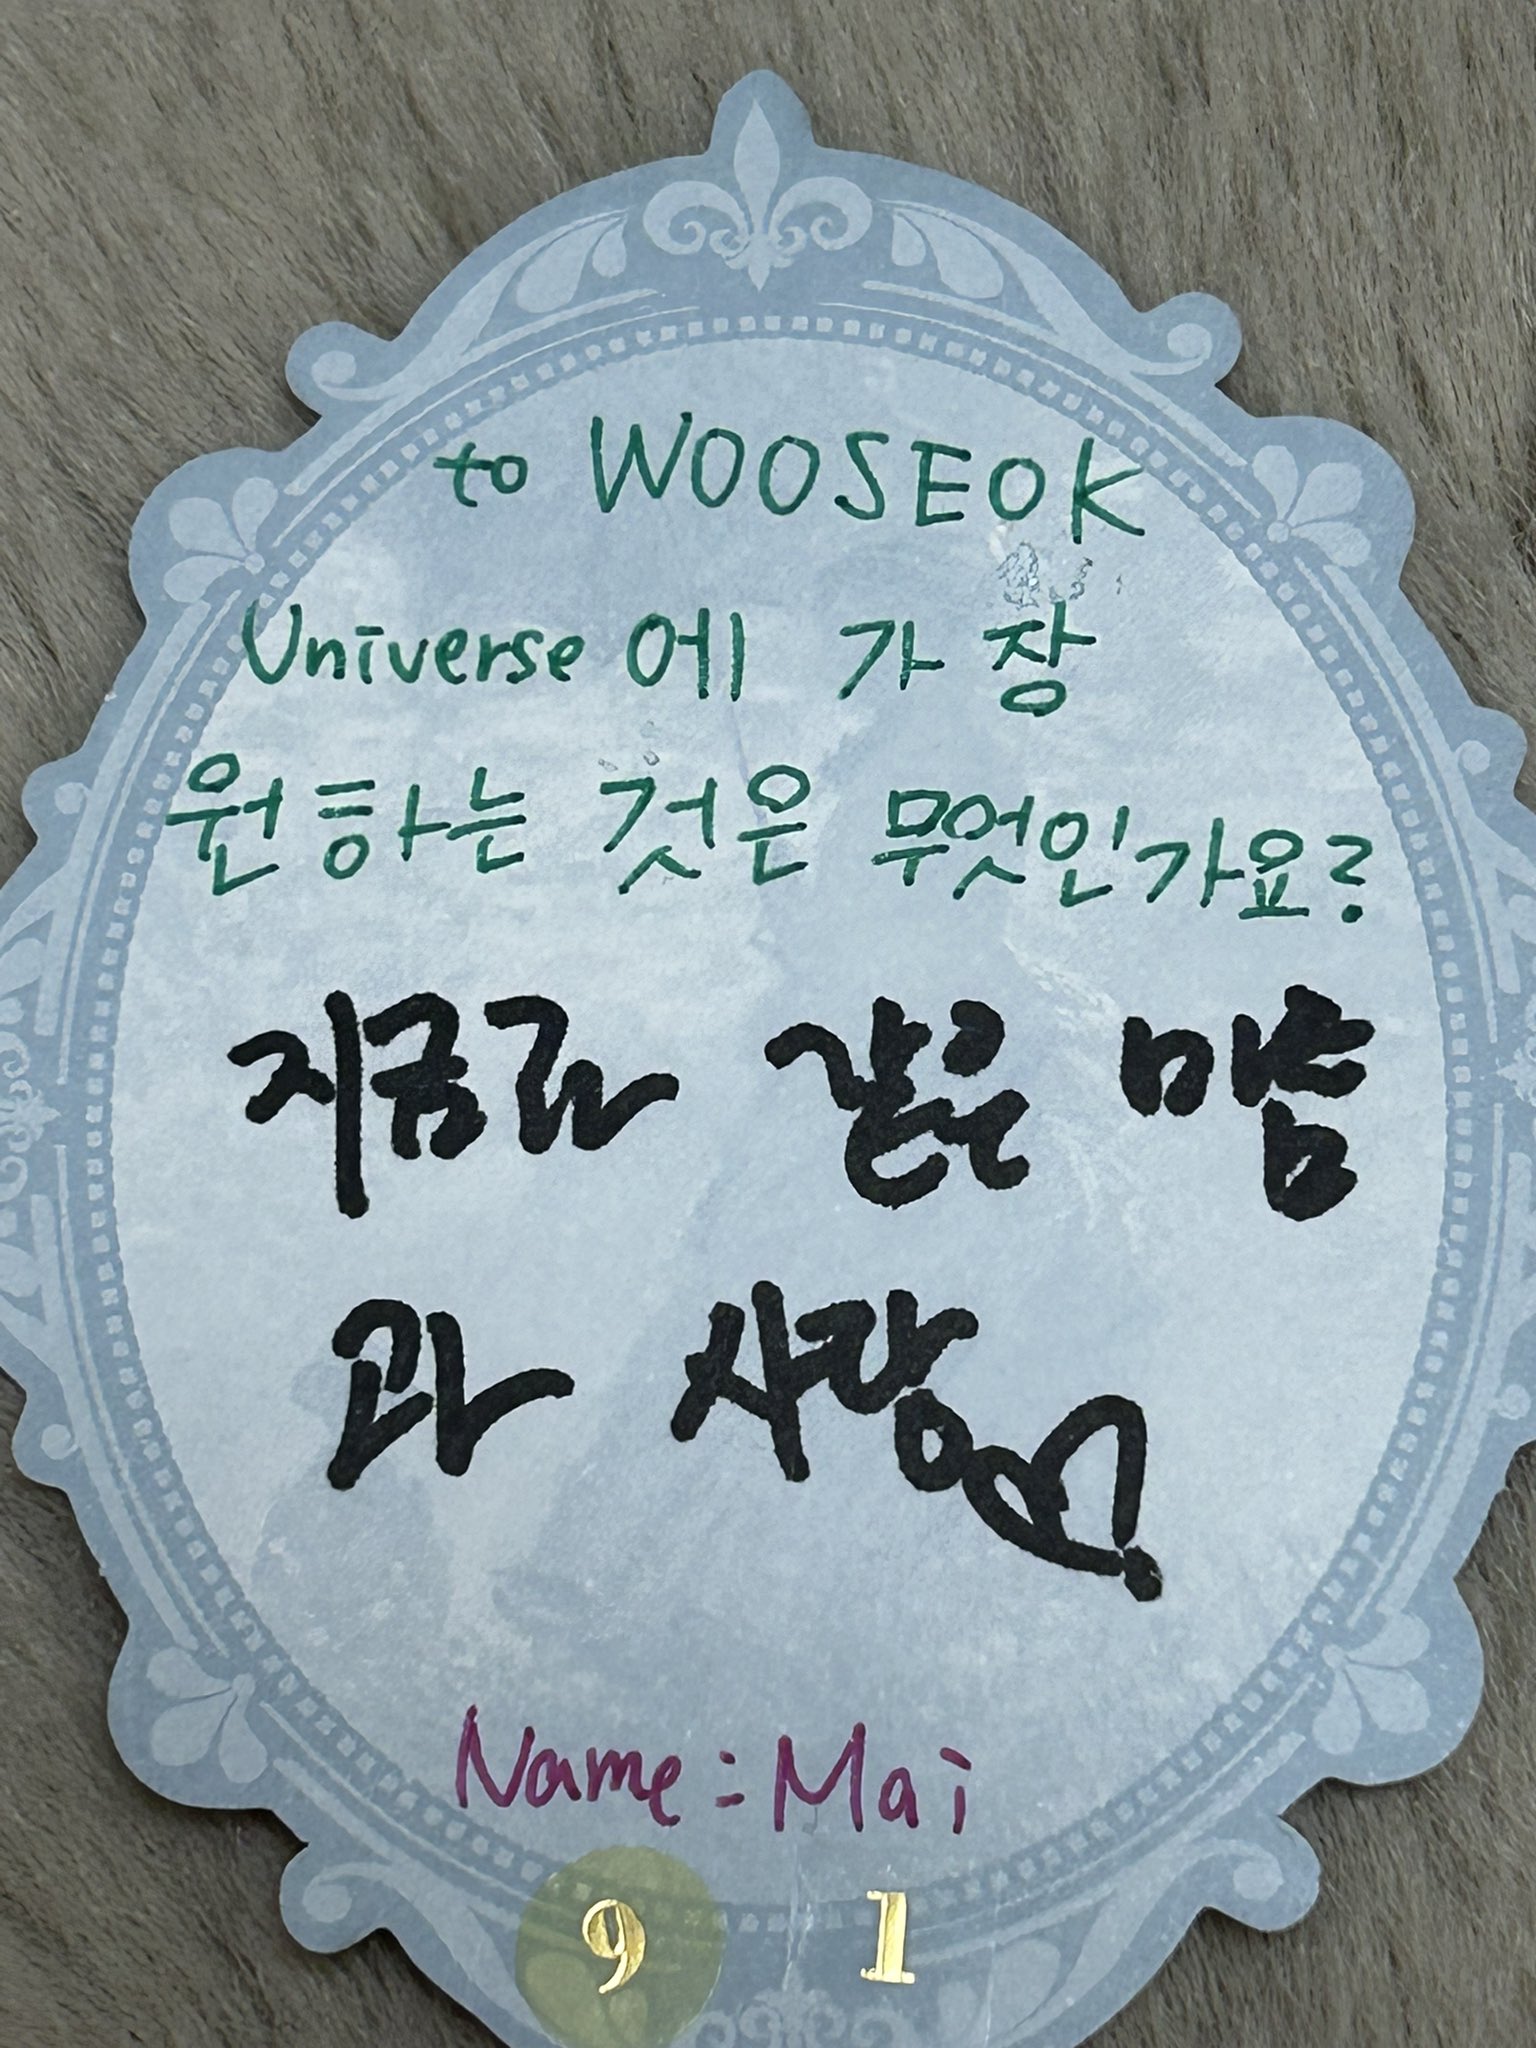 to WOOSEOK
Universe에 가장
원하는 것은 무엇인가요?
지금과 같은 마음
과 사랑
Name: Mai
9 1